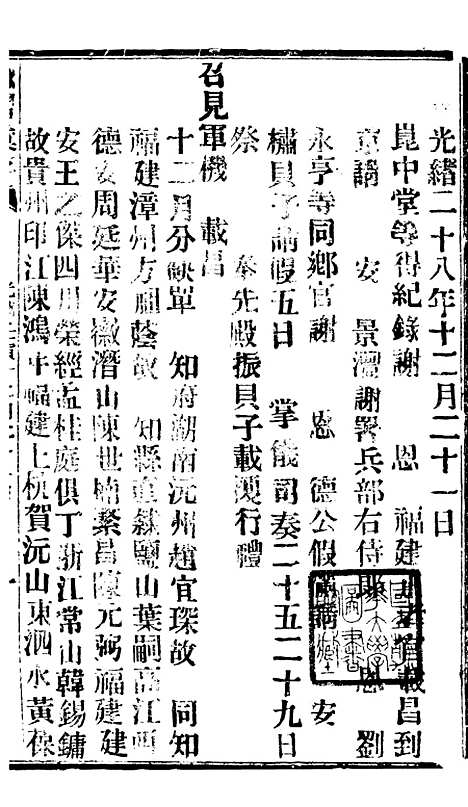 光緒二十八年十二月二十一日
崑中堂等得紀錄謝　恩　福建載昌到
京請　安　景灃謝署兵部右侍郎　恩　劉
永亨等同鄉官謝　恩　德公假滿請　安
橚貝子請假五日　掌儀司奏二十五二十九日
祭　奉先殿振貝子載復行禮
召見軍機　載昌
十二月分缺單　知府湖南沅州趙宜琛故　同知
福建漳州方蔭　知縣直隸鹽山葉嗣高江西
德安周廷華安徽潛山陳世楠繁昌陳元弼福建建
安王之傑四川榮經孟桂庭俱丁浙江常山韓錫鏞
故貴州印江陳鴻年福建上杭賀沅山東泗水黃葆